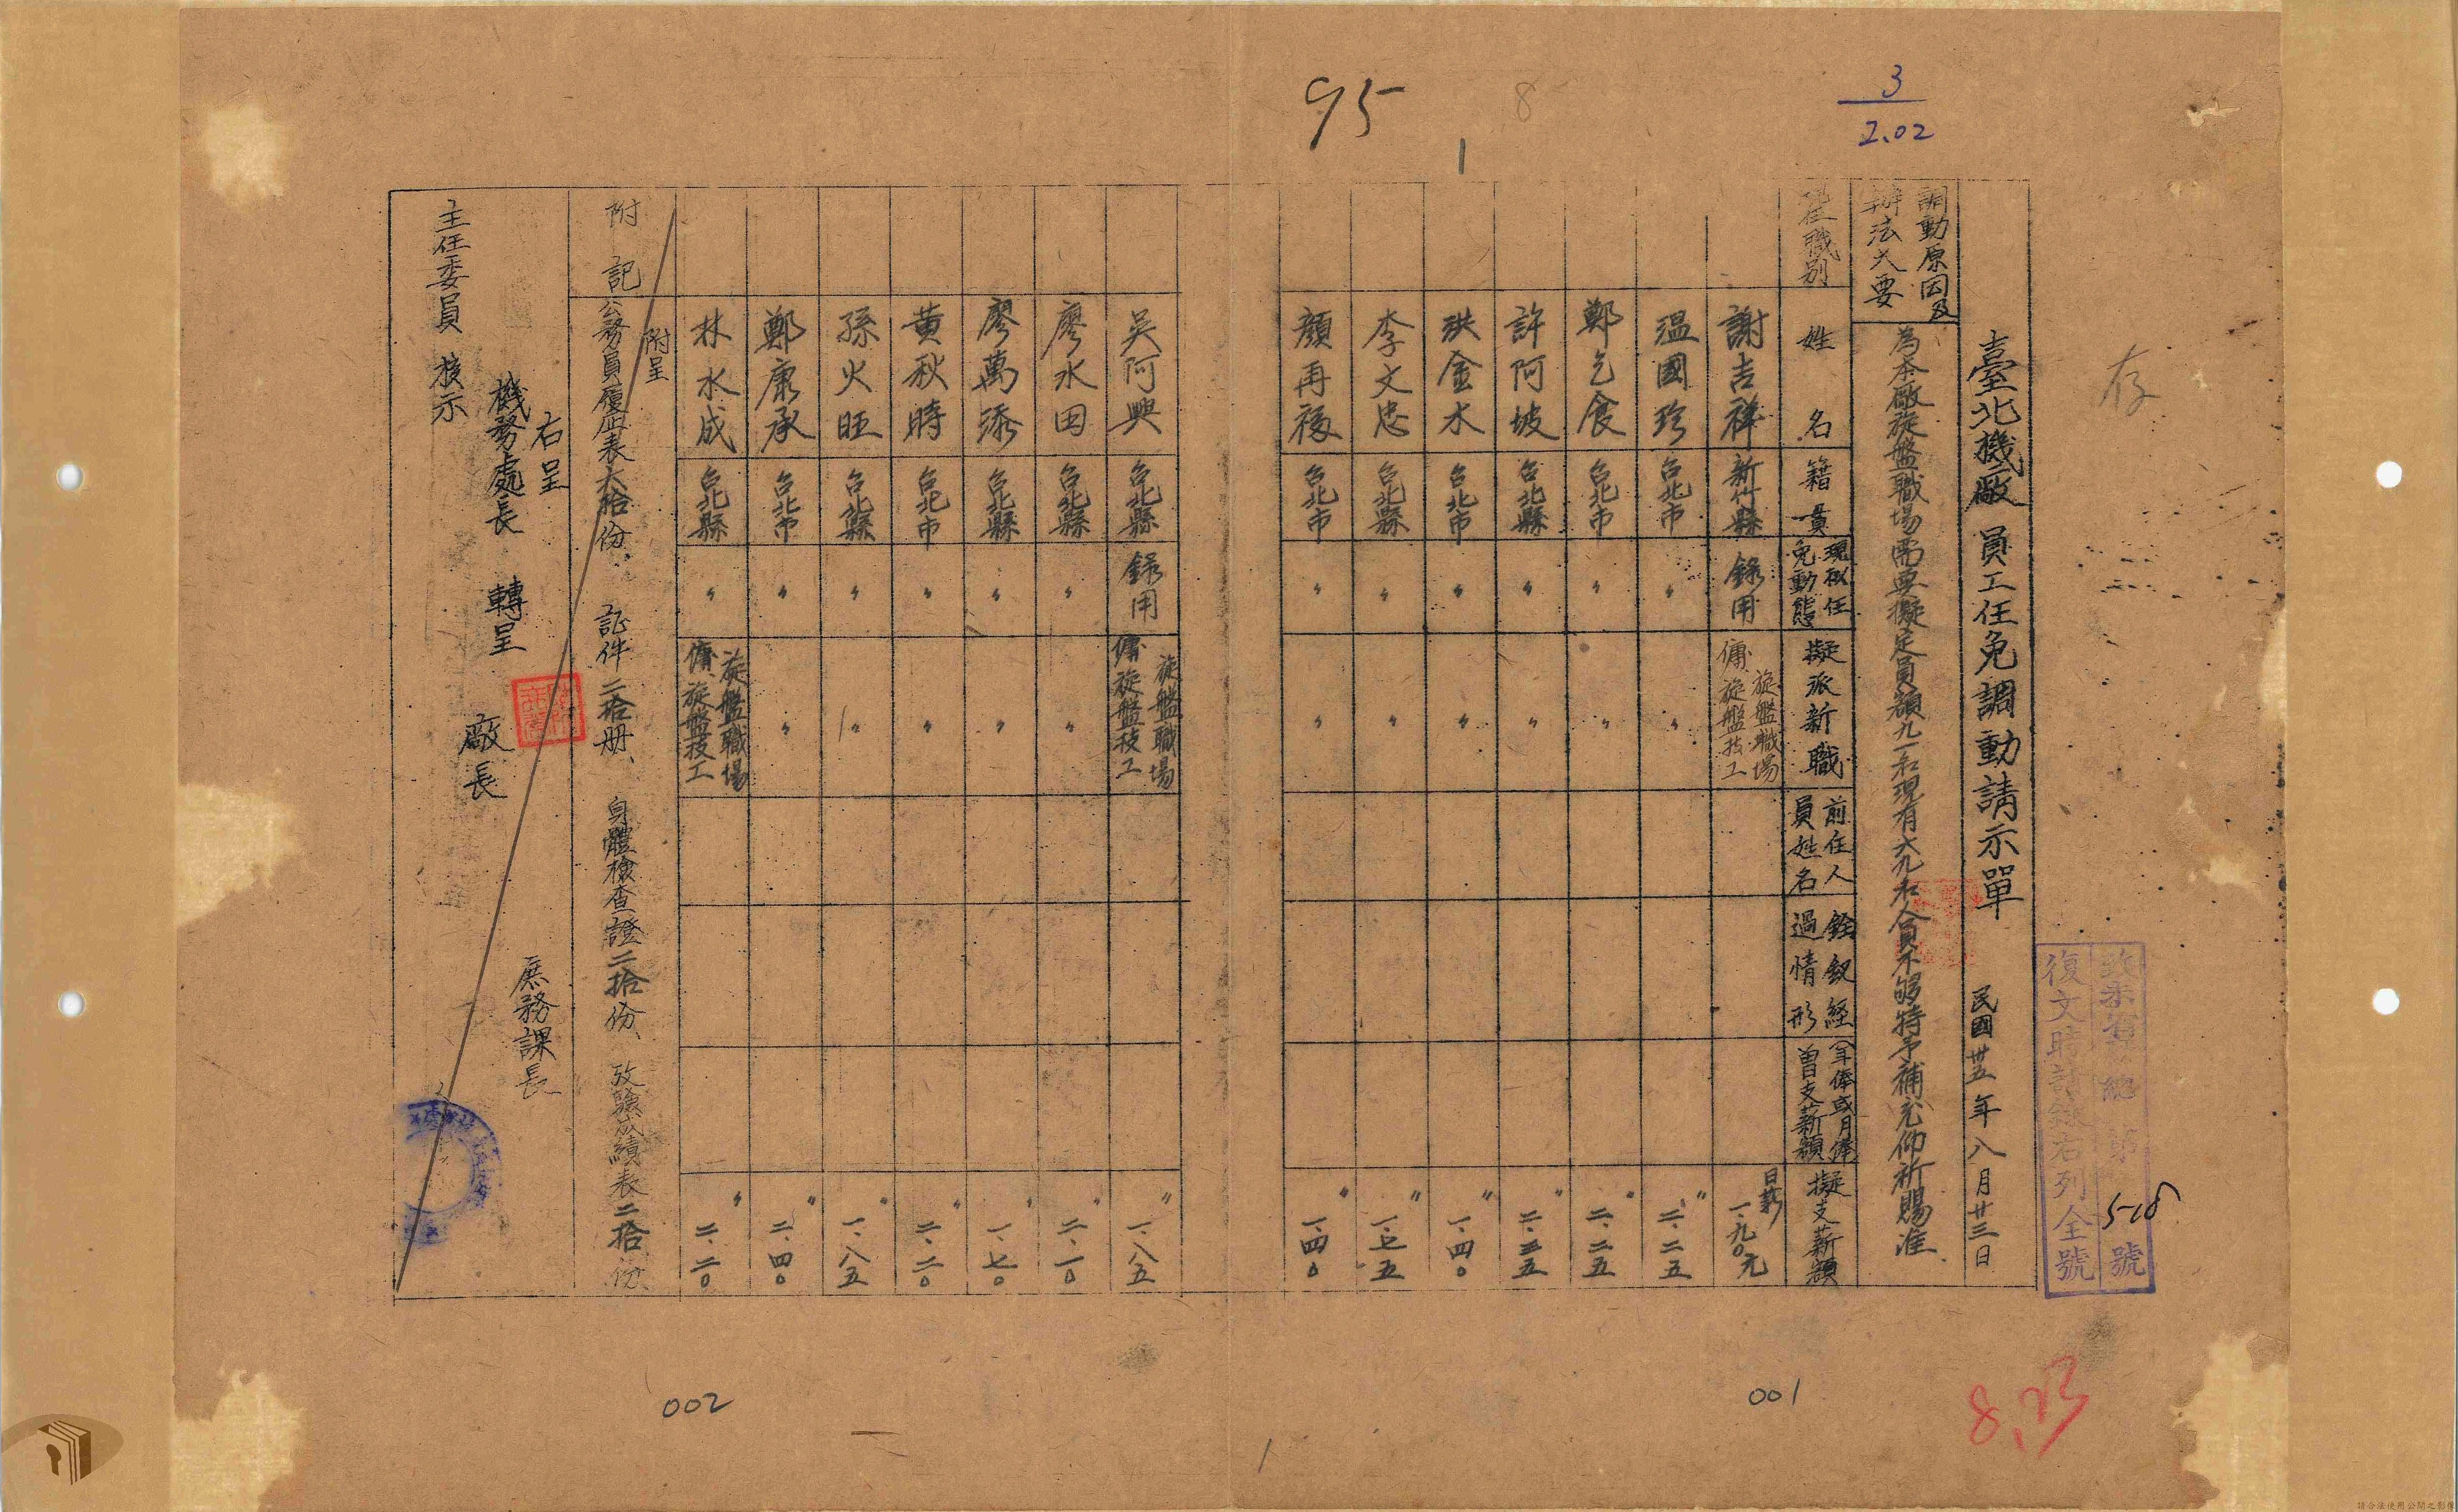 3
2.02
95
8
1
存
臺北機廠 員工任免調動請示單 民國卅五年八月廿三日
號
5-18號
復文時請錄右列全號
調動原因及
辦法大要
為本廠旋盤職場需要擬定員額九一名現有六九名人員不够特予補充仰祈賜准
現任職別
姓名
籍貫
現擬任
免動態
擬派新職
前任人
員姓名
銓敘經
過情形
(年俸或月俸)
曾支薪額
擬支薪額
謝吉祥 新竹縣 錄用 旋盤職場 傭、旋盤技工 日薪 一.九〇元
溫國珍 台北市 〃 〃 〃 二.二五
鄭乞食 台北市 〃 〃 〃 二.二五
許阿坡 台北縣 〃 〃 〃 二.三五
洪金水 台北市 〃 〃 〃 一.四〇
李文忠 台北縣 〃 〃 〃 一.七五
顏再福 台北市 〃 〃 〃 一.四〇
吳阿興 台北縣 錄用 旋盤職場 傭、旋盤技工 〃 一.八五
廖水田 台北縣 〃 〃 〃 二.一〇
廖萬添 台北縣 〃 〃 〃 一.七〇
黃秋時 台北市 〃 〃 〃 二.二〇
孫火旺 台北縣 〃 〃 〃 一.八五
鄭康承 台北市 〃 〃 〃 二.四〇
林水成 台北縣 〃 旋盤職場 傭、旋盤技工 〃 二.二〇
附呈
附記 公務員履歷表六拾份、証件二拾册、身體檢查證二拾份、攷驗成績表二拾份、
右呈
機務處長 轉呈
主任委員 核示
廠長
庶務課長
002
001
8.23
1
請合法使用公開之影像